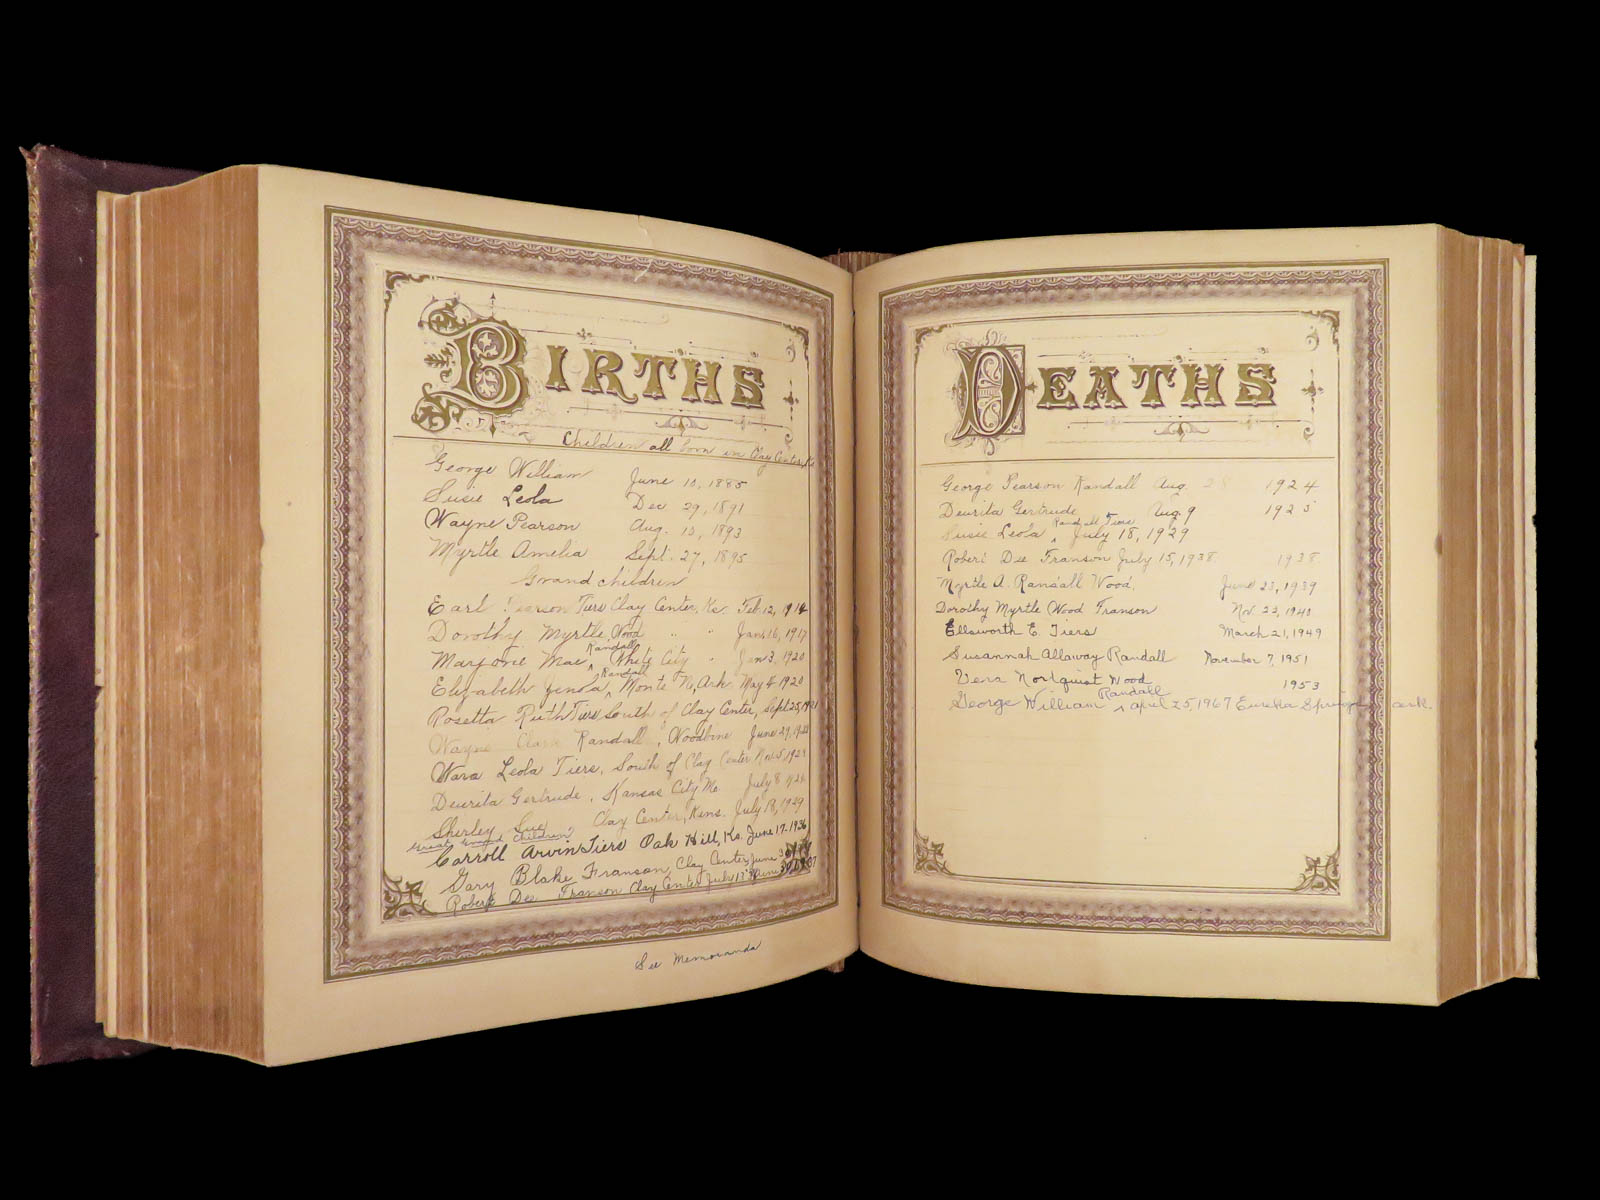 BIRTHS
Children all born in Clay Center, Ks
George William June 10, 1885
Susie Leola Dec 29, 1891
Wayne Pearson Aug. 1893
Myrtle Amelia Sept. 27, 1895
Grand children
Earl Pearson Tiers Clay Center, Ks. Feb. 12, 1914
Dorothy Myrtle Wood " " Jan. 16, 1917
Randall
Marjorie Mae ^ White City " Jan 3, 1920
Randall
Elizabeth ^ Monte Ne, Ark. May 4 1920
Rosetta Ruth Tiers South of Clay Center, Sept 25, 1921
Wayne Randall, Woodbine June 29,
Wara Leola Tiers, South of Clay Center Nov. 5, 1923
Deurita Gertrude, Kansas City Mo July 8
Shirley Sue Clay Center, Kans. July 18, 1929
Great Grand Children
Carroll Arvin Tiers Oak Hill, Ks. June 17-1936
Gary Blake Franson Clay Center, June
Robert Dee Franson Clay Center July 17
See Memoranda
DEATHS
George Pearson Randall Aug. 28 1924
Deurita Gertrude Aug. 9 1925
Randall Tiers
Susie Leola ^ July 18, 1929
Robert Dee Franson July 15, 1938. 1938
Myrtle A. Randall Wood June 23, 1939
Dorothy Myrtle Wood Franson Nov. 23, 1940
Ellsworth E. Tiers March 21, 1949
Susannah Allaway Randall November 7, 1951
Vera Nordquist Wood 1953
Randall
George William ^ April 25, 1967 Eureka Springs Ark.